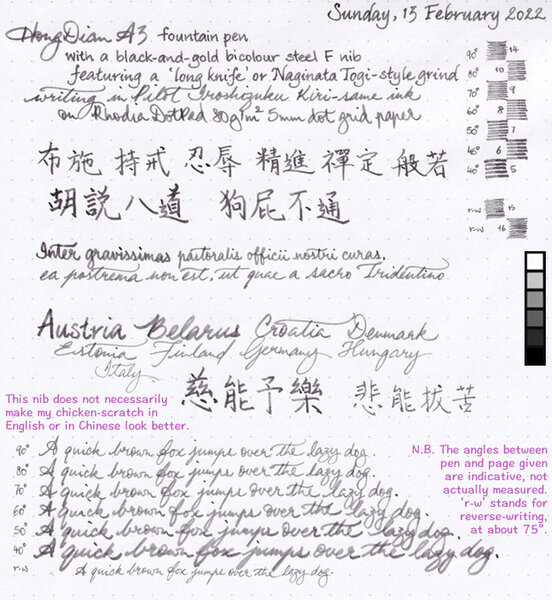 Sunday, 13 February 2022
HongDian A3 fountain pen
with a black-and-gold bicolour steel F nib
featuring a 'long knife' or Naginata Togi-style grind
writing in Pilot Iroshizuku Kiri-same ink
on Rhodia DotPad 80g/m² 5mm dot grid paper
90° 14
80° 10
70° 9
60° 8
50° 7
45° 6
40° 5
r-w 15
r-w 16
布施 持戒 忍辱 精進 禪定 般若
胡說八道 狗屁不通
Inter gravissimas pastoralis officii nostri curas,
ea postrema non est, ut quae a sacro Tridentino
Austria Belarus Croatia Denmark
Estonia Finland Germany Hungary
Italy
慈能予樂 悲能拔苦
This nib does not necessarily
make my chicken-scratch in
English or in Chinese look better.
90° A quick brown fox jumps over the lazy dog.
80° A quick brown fox jumps over the lazy dog.
70° A quick brown fox jumps over the lazy dog.
60° A quick brown fox jumps over the lazy dog.
50° A quick brown fox jumps over the lazy dog.
40° A quick brown fox jumps over the lazy dog.
r-w A quick brown fox jumps over the lazy dog.
N.B. The angles between
pen and page given
are indicative, not
actually measured.
'r-w' stands for
reverse-writing,
at about 75°.